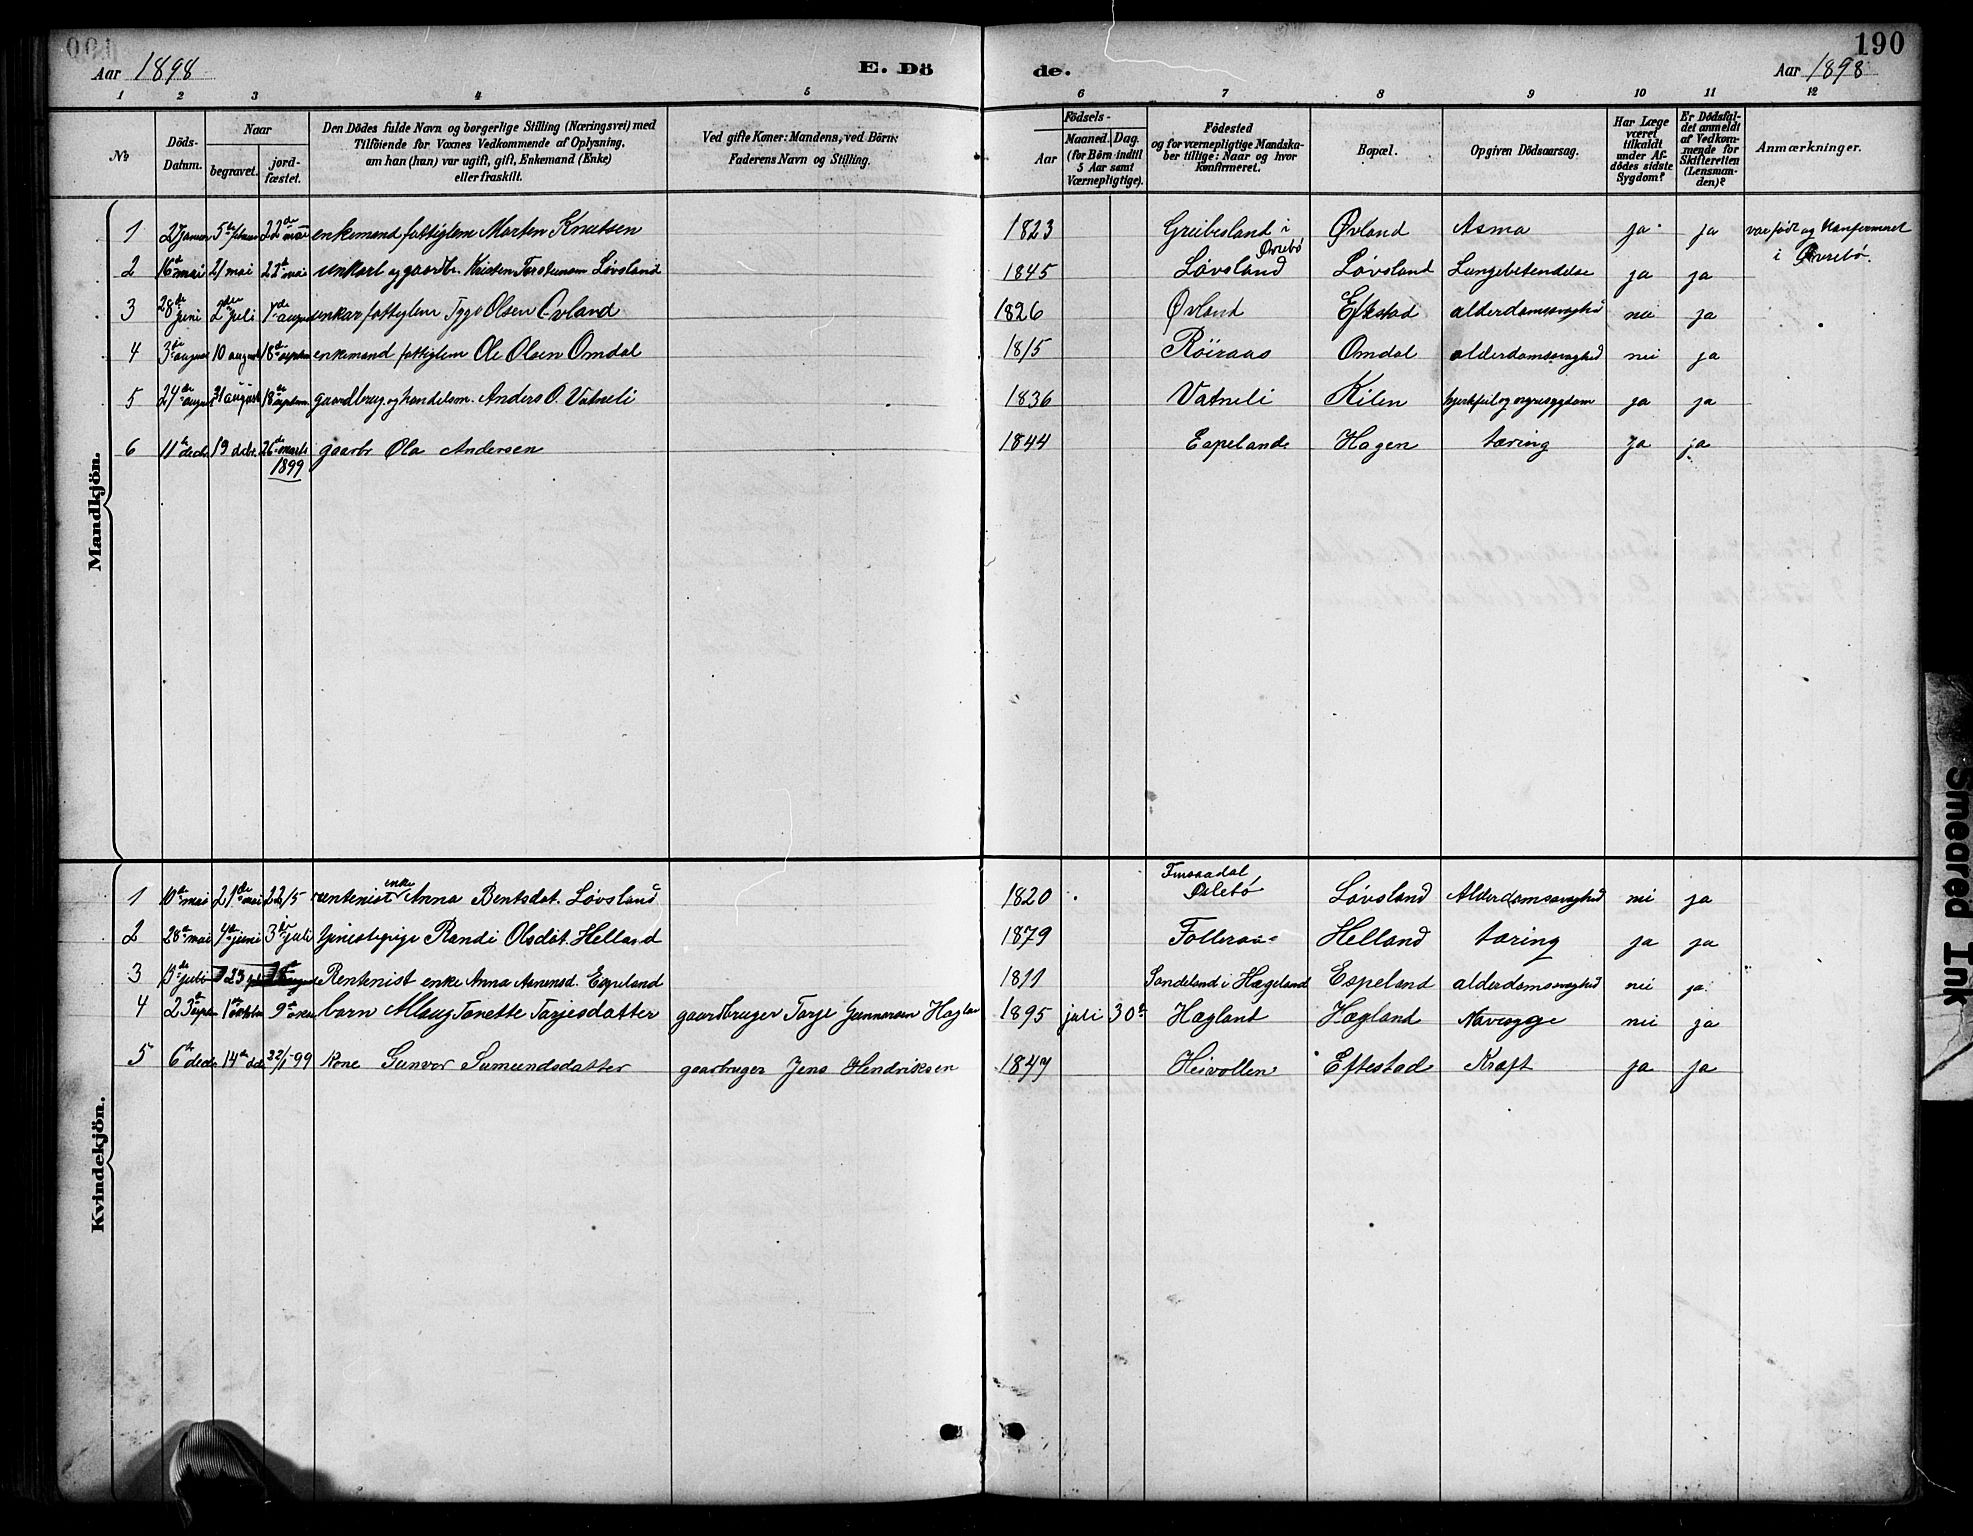 190
Aar 1898 E. Dö de. Aar 1898
1 2 3 4 5 6 7 8 9 10 11 12
No
Döds-Datum.
Naar
begravet.
jord-fæstet.
Den Dödes fulde Navn og borgerlige Stilling (Næringsvei) med
Tilföiende for Voxnes Vedkommende af Oplysning,
om han (han) var ugift, gift, Enkemand (Enke)
eller fraskilt.
Ved gifte Koner: Mandens, ved Börn:
Faderens Navn og Stilling.
Födsels-
Aar
Maaned. Dag.
(for Börn indtil
5 Aar samt
Værnepligtige).
Födested
og for værnepligtige Mandska-
ber tillige: Naar og hvor
konfirmeret.
Bopæl.
Opgiven Dödsaarsag.
Har Læge
været
tilkaldt
under Af-
dödes sidste
Sygdom?
Er Dödsfal-
det anmeldt
af Vedkom-
mende for
Skifteretten
(Lensman-
den)?
Anmærkninger.
Mandkjön.
1 2 Januar 5te februar 22de mai enkemand fattiglem Marten Knutsen 1823 Greibesland i Øvrebø Øvland Asma ja ja var født og Konfirmeret
i Øvrebø.
2 16de mai 21 mai 22de mai unkarl og gaardbr. Kristen Torsteinsen Løvsland 1845 Løvsland Løvsland Lungebetendelse ja ja
3 28de juni 2den juli 1de august unkar fattiglem Tygs Olsen Øvland 1826 Øvland Eftestad alderdomssvaghed nei ja
4 3de august 10 august 18de septem enkemand fattiglem Ole Olsen Omdal 1815 Röiraas Omdal alderdomssvaghed nei ja
5 24de august 31 august 18de septem gaardbrug. og handelsm. Anders O. Vatneli 1836 Vatneli Kilen hjertefeil og nyresygdom ja ja
6 11te decbr 19 decbr. 26de marts 1899 gaarbr Ola Andersen 1844 Espeland Hagen tæring Ja ja
Kvindekjön.
1 10de mai 21de mai 22/5 rentenist enke Anna Bentsdat. Løvsland 1820 Finsaadal Øvlebø Løvsland Alderdomssvaghed nei ja
2 28de mai 4de juni 3die juli tjenestepige Randi Olsdat. Helland 1879 Folleraas Helland tæring ja ja
3 juli 23 Rentenist enke Anna Asnensd. Espeland 1811 Sandeland i Hægeland Espeland alderdomssvaghed nei ja
4 23de sept 1ste oktober 9de okto barn Alaug Tonette Tarjesdatter gaardbruger Tarje Gunnarsen Hægla 1895 juli 30te Hægland Hægland Navesyge nei ja
5 6te decbr 14de dcbr 22/1-99 kone Gunvor Samundsdatter gaarbruger Jens Hendriksen 1847 Heivollen Eftestad Kræft ja ja
Smeared Ink